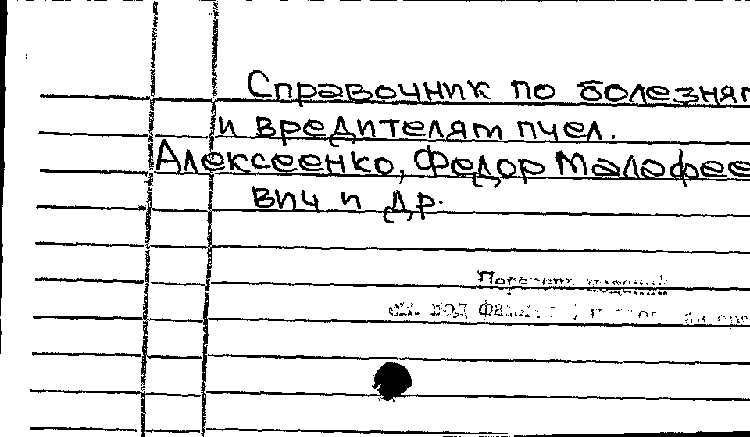 Справочник по болезням
и вредителям пчел.
Алексеенко, Федор Малафее
вич и др.
см. под фам